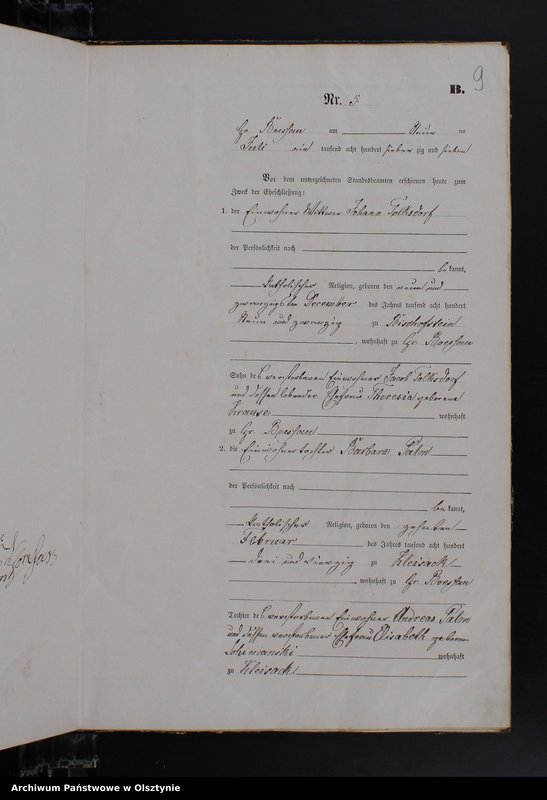 B. 9
Nr. 5.
Gr Boessau am Neun ten
Juli ein tausend acht hundert sieben zig und sieben
Vor dem unterzeichneten Standesbeamten erschienen heute zum
Zweck der Eheschließung:
1. der Einwohner Wittwer Johann Tolksdorf
der Persönlichkeit nach
be kannt,
katholischer Religion, geboren den neun und
zwanzigsten December des Jahres tausend acht hundert
Neun und zwanzig zu Bischofstein
, wohnhaft zu Gr Boessau
Sohn des verstorbenen Einwohner Jacob Tolksdorf
und dessen lebender Ehefrau Theresia geborene
Krause wohnhaft
zu Gr Boessau
2. die Einwohnertochter Barbara Palm
der Persönlichkeit nach
be kannt,
katholischer Religion, geboren den zehnten
Februar des Jahres tausend acht hundert
drei und vierzig zu Kleisack
, wohnhaft zu Gr Boessau
Tochter des verstorbenen Einwohner Andreas Palm
und dessen verstorbener Ehefrau Elisabeth geboren
Schimanski wohnhaft
zu Kleisack
Archiwum Państwowe w Olsztynie